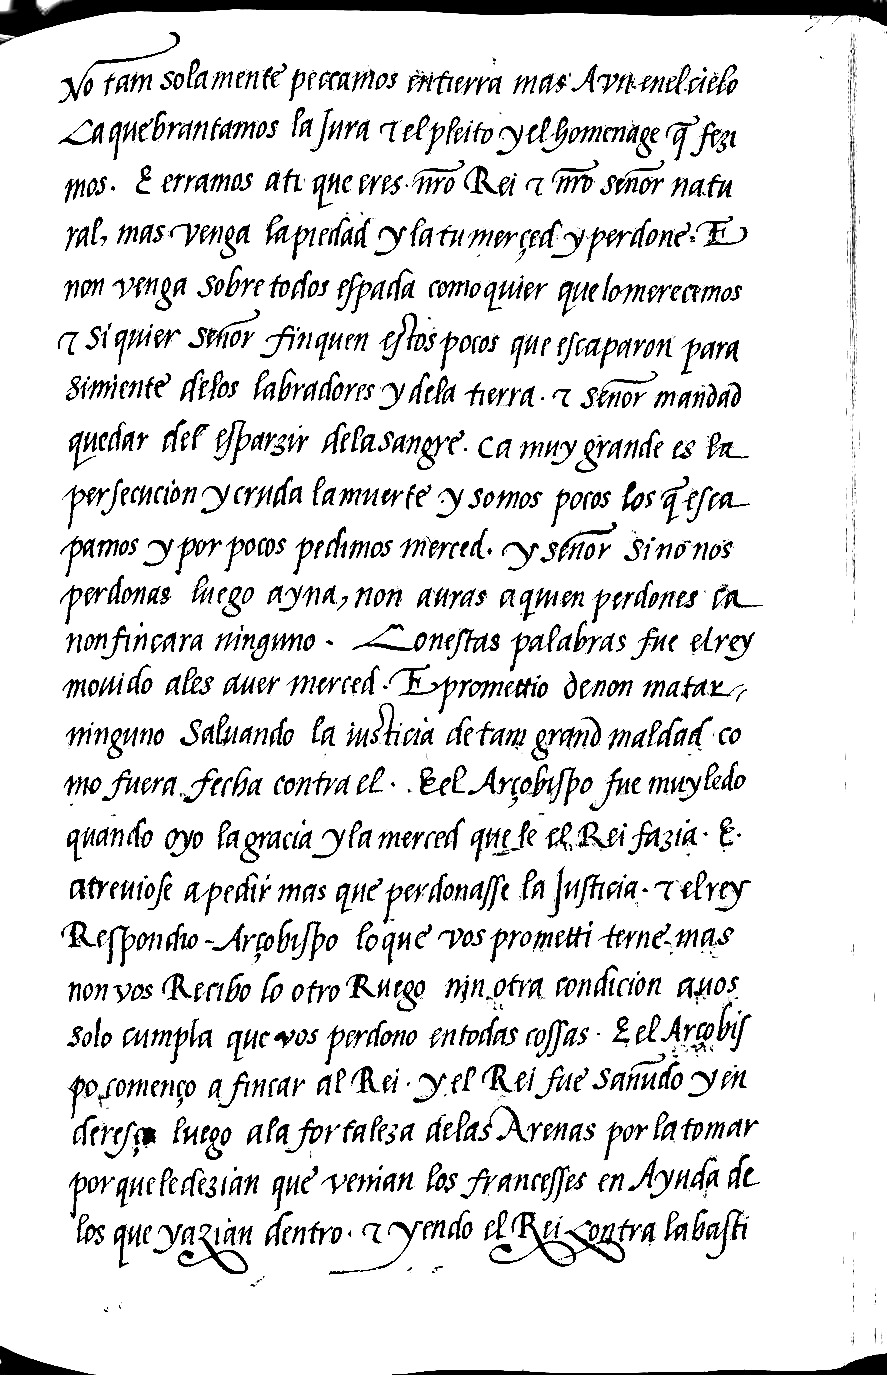 No tam solamente peccamos en tierra mas Avn enel cielo
La quebrantamos la Jura τ el pleito y el homenage q̃ fezi
mos. E erramos ati que eres nr̃o Rei τ nr̃o señor natu
ral, mas venga la piedad y la tu merçed y perdone. E
non venga sobre todos espada como quier que lo merecemos
τ si quier señor finquen estos pocos que escaparon para
simiente delos labradores y dela tierra. τ señor mandad
quedar del esparzir dela sangre. ca muy grande es la
persecucion y cruda la muerte y somos pocos los q̃ esca
pamos y por pocos pedimos merced. y señor si no nos
perdonas luego ayna, non auras a quien perdones ca
non fincara ninguno. Con estas palabras fue el rey
mouido ales auer merced. E promettio de non matar
ninguno saluando la iusticia de tam grand maldad co
mo fuera fecha contra el. E el Arçobispo fue muy ledo
quando oyo la gracia y la merced que le el Rei fazia. E
atreuiose a pedir mas que perdonasse la Justicia. τ el rey
Respondio Arçobispo lo que vos prometti terne mas
non vos Recibo lo otro Ruego nin otra condicion auos
solo cumpla que vos perdono en todas cossas. E el Arçobis
po començo a fincar al Rei. y el Rei fue sañudo y en
deresço luego ala fortaleza delas Arenas por la tomar
por que le dezian que venian los francesses en Ayuda de
los que yazian dentro. τ yendo el Rei contra la basti